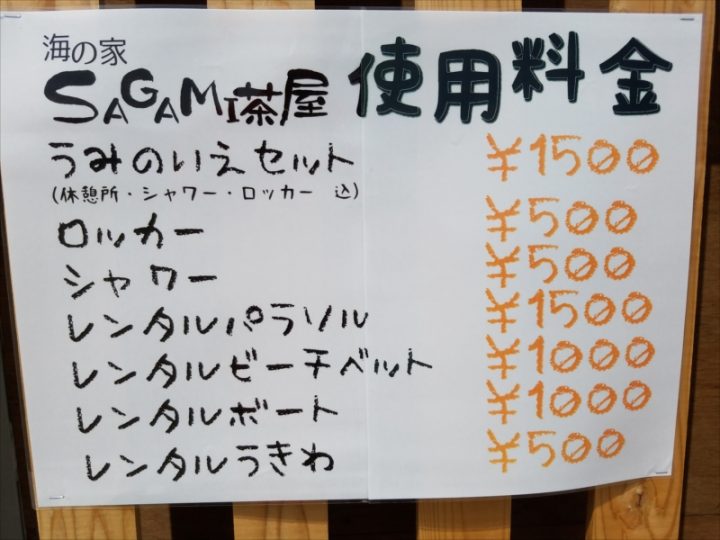 海の家
SAGAMI茶屋 使用料金
うみのいえセット ¥1500
(休憩所・シャワー・ロッカー 込)
ロッカー ¥500
シャワー ¥500
レンタルパラソル ¥1500
レンタルビーチベット ¥1000
レンタルボート ¥1000
レンタルうきわ ¥500